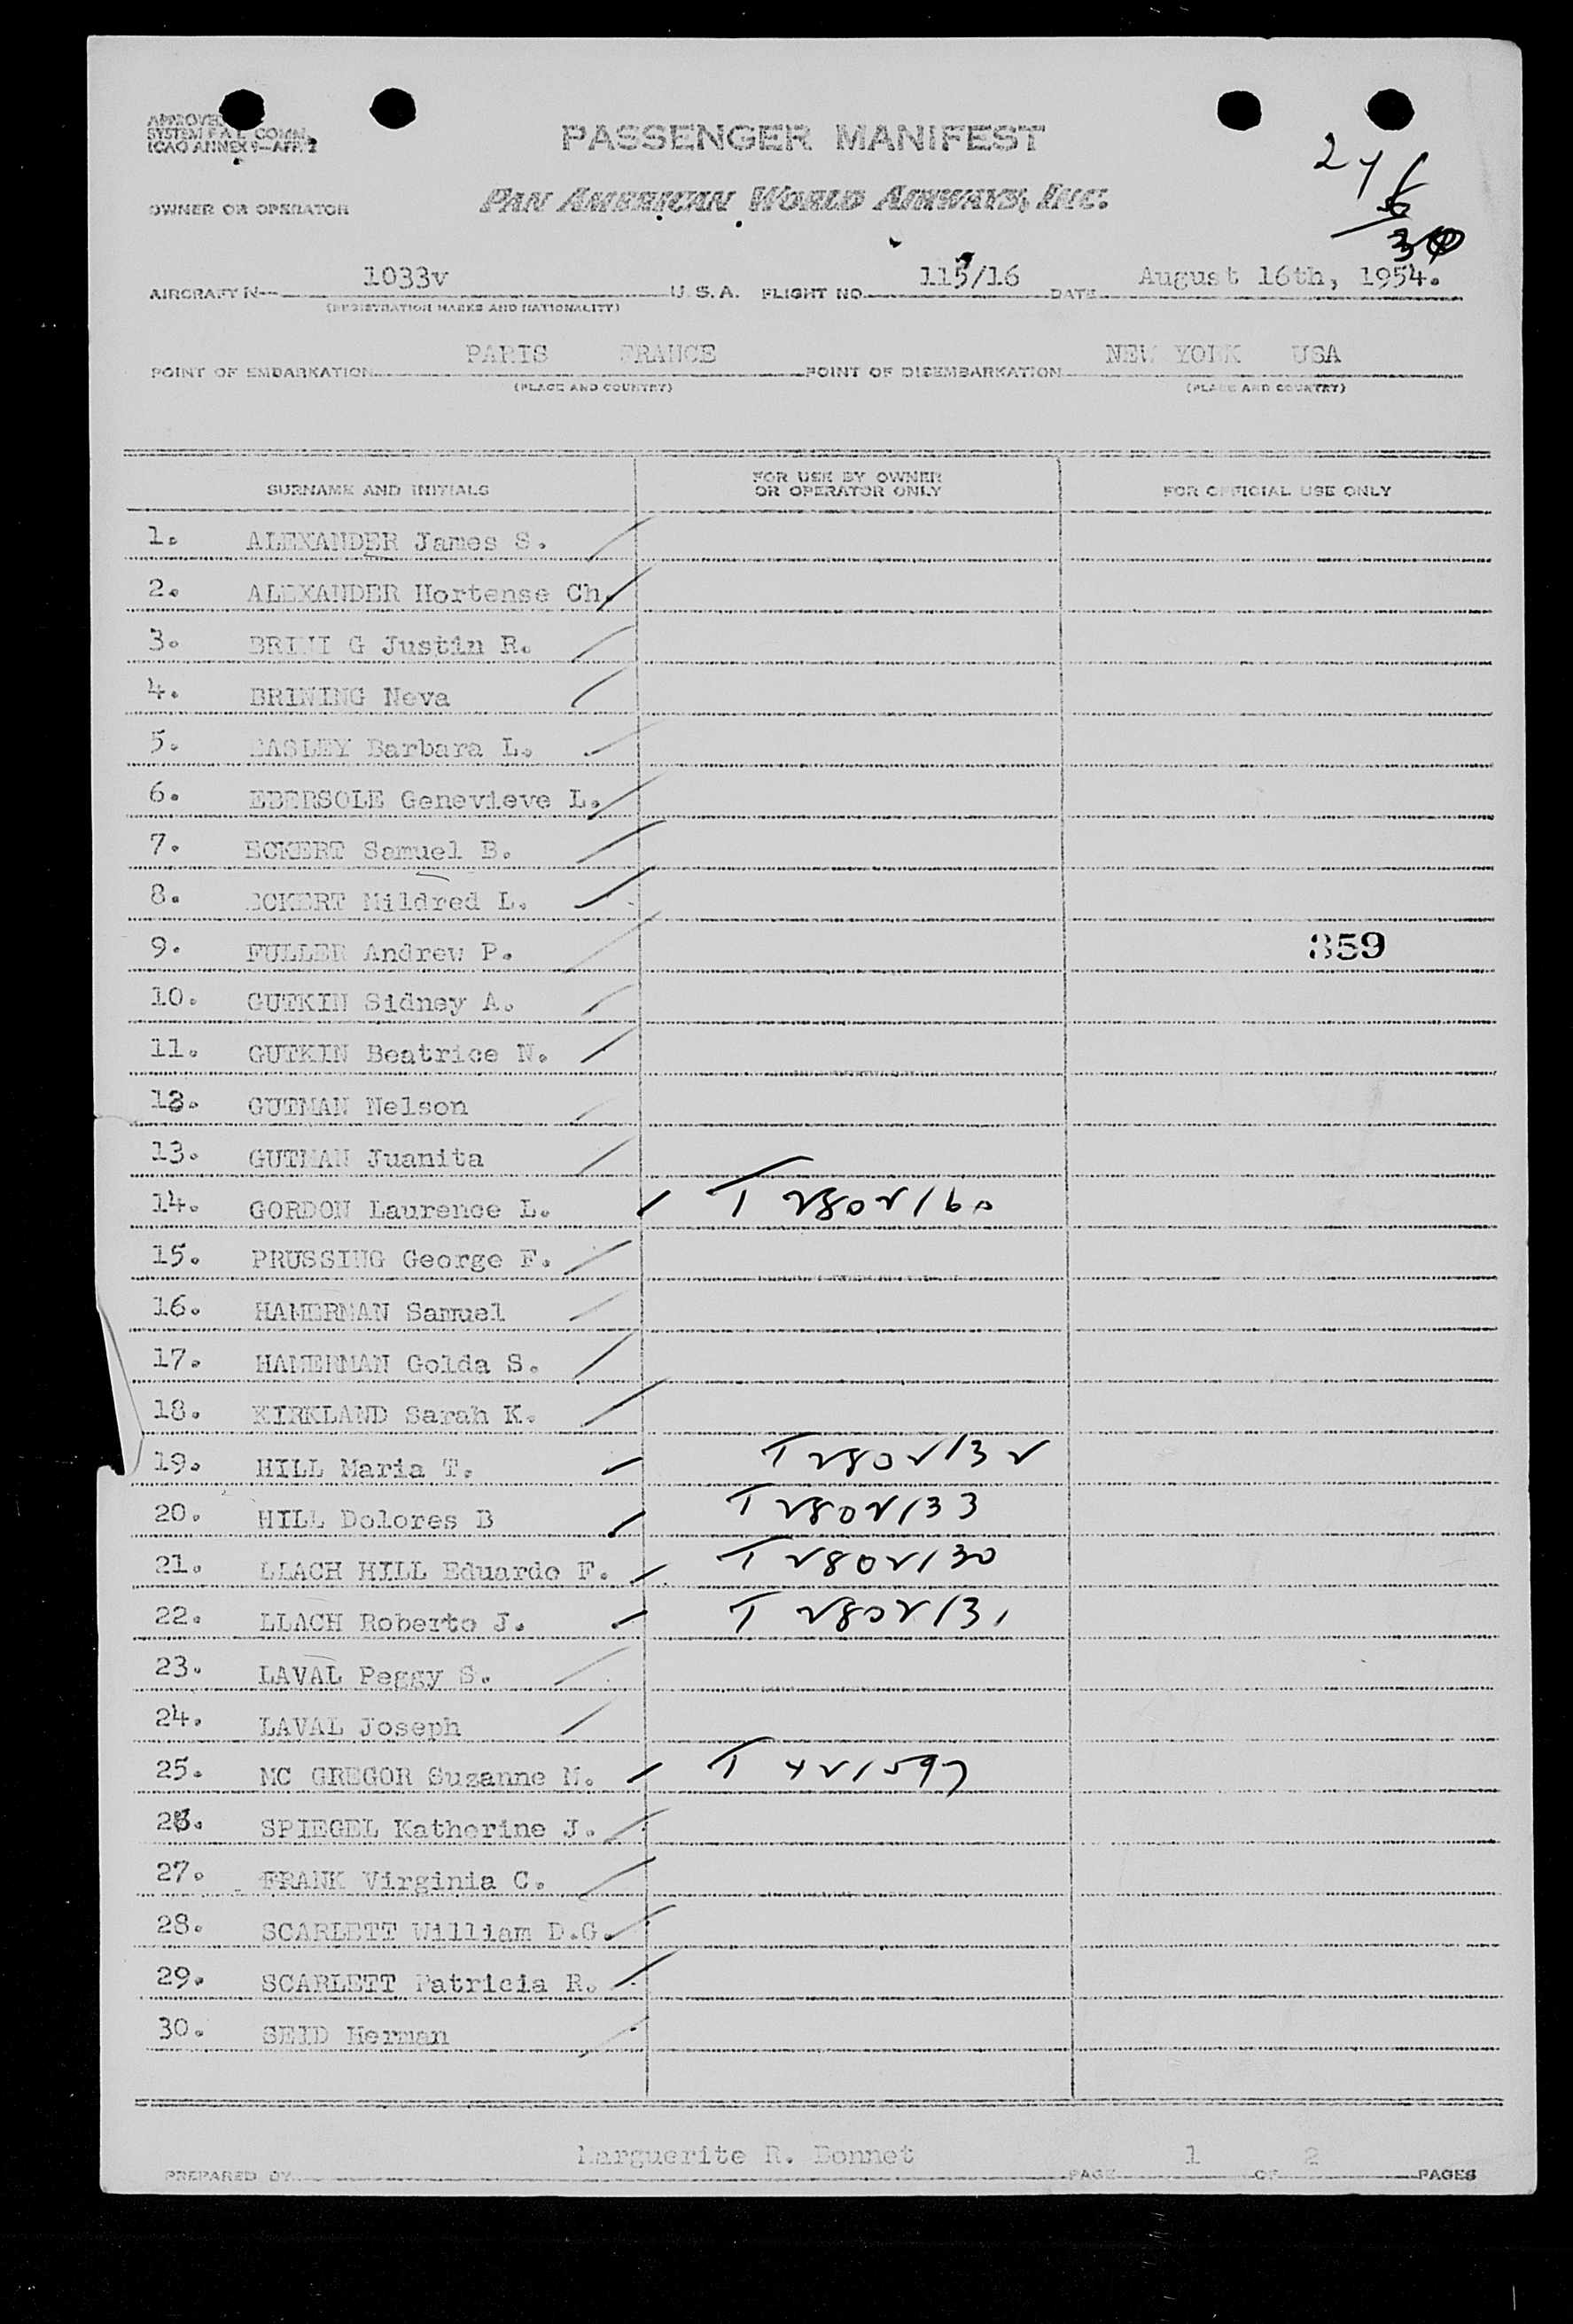 APPROVED
SYSTEM F A L COMM.
ICAO ANNEX 9—APP. 2
PASSENGER MANIFEST
OWNER OR OPERATOR
PAN AMERICAN WORLD AIRWAYS, INC.
24
6
30
AIRCRAFT N— 1033v U. S. A. FLIGHT NO. 115/16 DATE August 16th, 1954.
(REGISTRATION MARKS AND NATIONALITY)
POINT OF EMBARKATION PARIS FRANCE POINT OF DISEMBARKATION NEW YORK USA
(PLACE AND COUNTRY) (PLACE AND COUNTRY)
SURNAME AND INITIALS
FOR USE BY OWNER
OR OPERATOR ONLY
FOR OFFICIAL USE ONLY
1. ALEXANDER James S.
2. ALEXANDER Hortense Ch.
3. BRINI G Justin R.
4. BRINING Neva
5. EASLEY Barbara L.
6. EBERSOLE Genevieve L.
7. ECKERT Samuel B.
8. ECKERT Mildred L.
9. FULLER Andrew P. 359
10. GUTKIN Sidney A.
11. GUTKIN Beatrice N.
12. GUTMAN Nelson
13. GUTMAN Juanita
14. GORDON Laurence L. T 2802160
15. PRUSSING George F.
16. HAMERMAN Samuel
17. HAMERMAN Golda S.
18. KIRKLAND Sarah K.
19. HILL Maria T. T 2802132
20. HILL Dolores B T 2802133
21. LLACH HILL Eduardo F. T 2802130
22. LLACH Roberto J. T 2802131
23. LAVAL Peggy S.
24. LAVAL Joseph
25. MC GREGOR Suzanne M. T 421597
26. SPIEGEL Katherine J.
27. FRANK Virginia C.
28. SCARLETT William D.G.
29. SCARLETT Patricia R.
30. SEID Herman
PREPARED BY Marguerite R. Bonnet PAGE 1 OF 2 PAGES